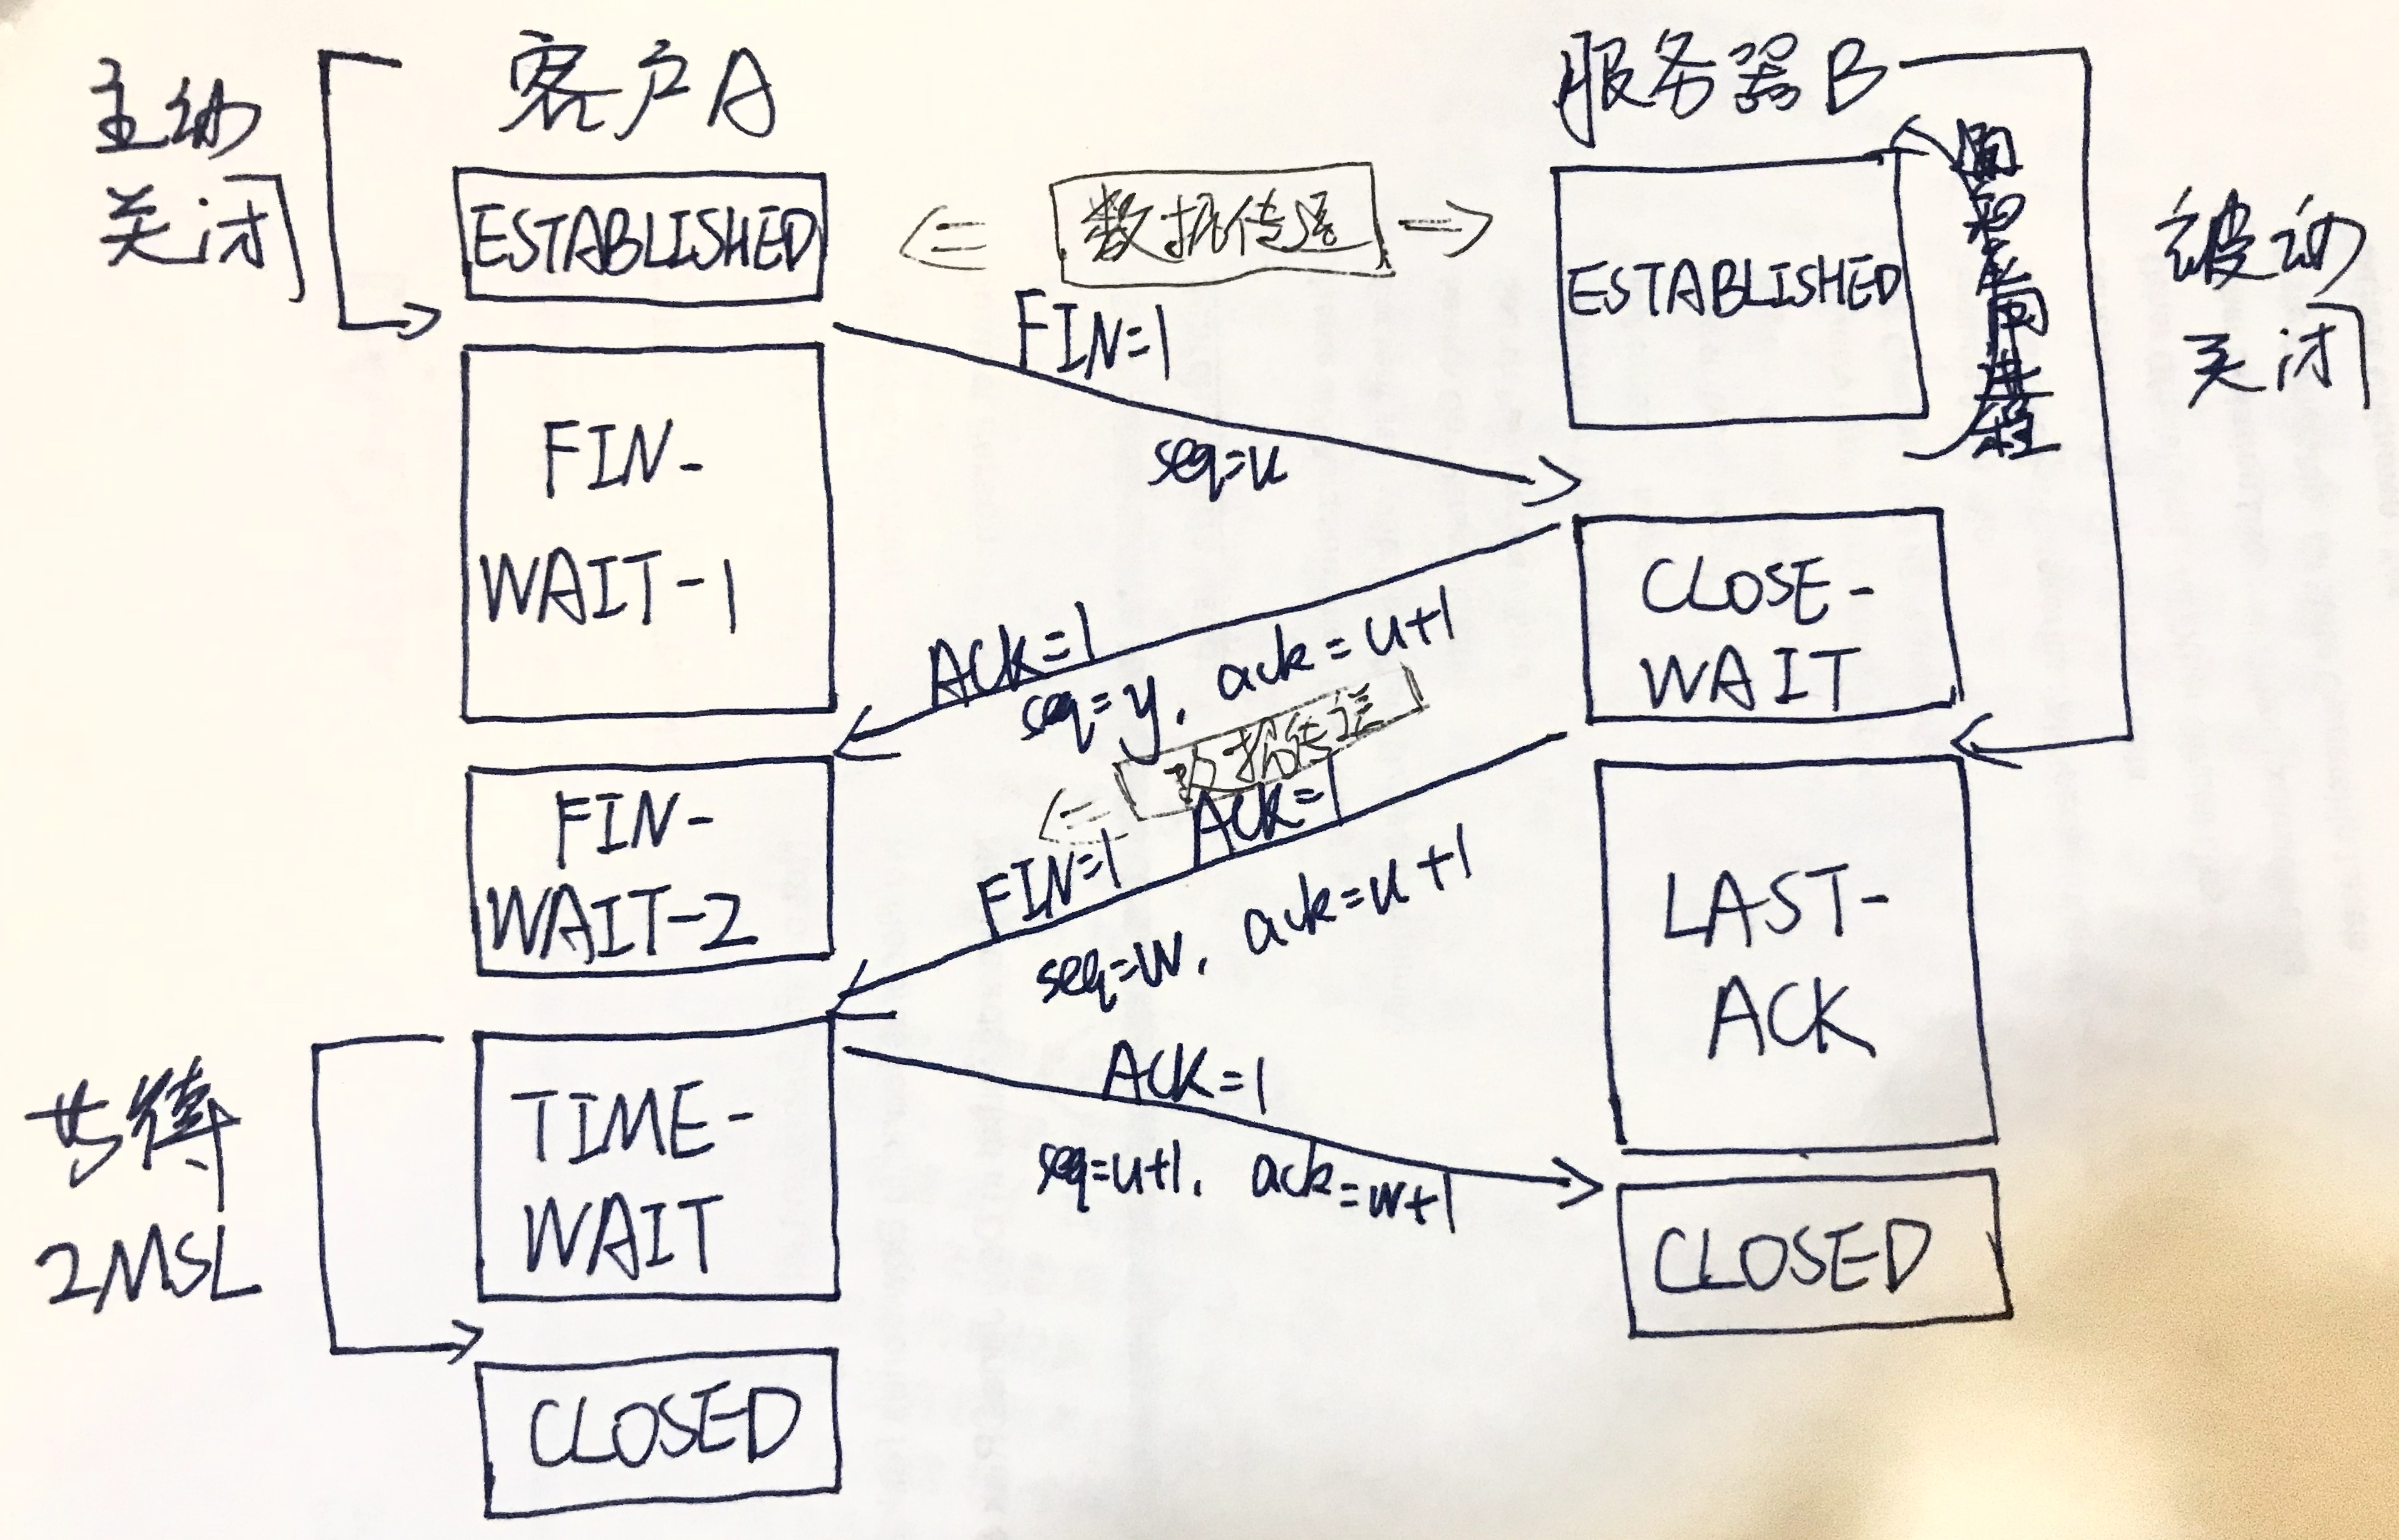 主动
关闭
客户A
服务器B
ESTABLISHED
数据传送
ESTABLISHED
通知应用进程
被动
关闭
FIN=1
seq=u
FIN-
WAIT-1
CLOSE-
WAIT
ACK=1
seq=y, ack=u+1
数据传送
FIN-
WAIT-2
FIN=1 ACK=1
seq=w, ack=u+1
LAST-
ACK
等待
2MSL
TIME-
WAIT
ACK=1
seq=u+1, ack=w+1
CLOSED
CLOSED